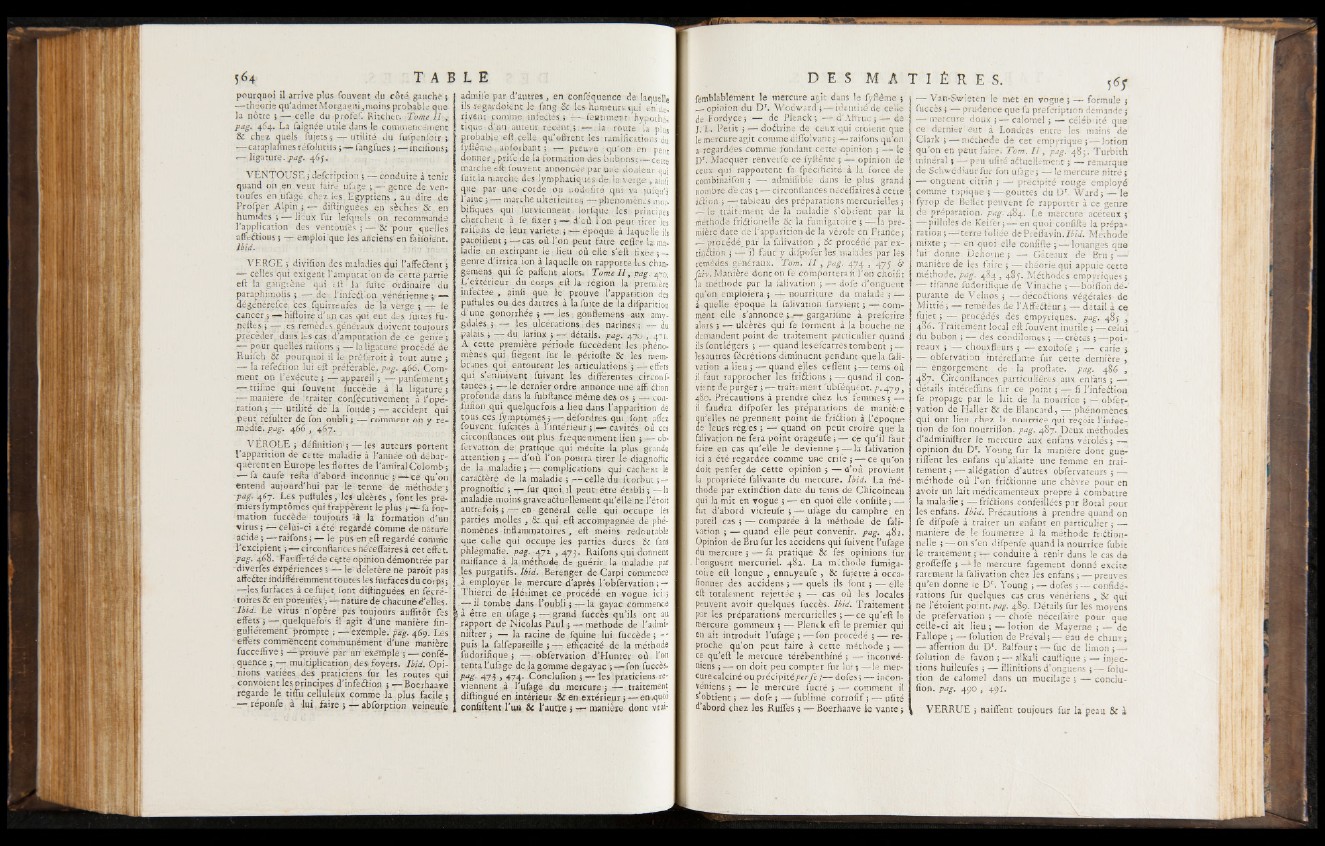 564 TABLE
pourquoi il arrive plus souvent du côté gauche ;
— théorie qu'admet Morgagni, moins probable que
la nôtre ; — celle du profes. Ritcher. Tome II,
pag. 464. La saignée utile dans le commencement
& chez quels sujets ; — utilité du suspensoir ;
— cataplasmes résolutifs ; — sangsues ; — incisions ;
— ligature. pag. 465.
VENTOUSE ; description ; — conduite à tenir
quand on en veut faire usage ; — genre de ven-
touses en usage chez les Egyptiens, au dire de
Prosper Alpin ; — distinguées en sèches & en
humides ; — lieux sur lesquels on recommande
l'application des ventouses ; — & pour quelles
affections ; — emploi que les anciens en faisoient.
Ibid.
VERGE ; division des maladies qui l'affectent ;
— celles qui exigent l'amputation de cette partie
est la gangrène qui est la suite ordinaire du
paraphimosis ; — de l'infection vénérienne ; —
dégénérescence squirreuse de la verge ; — le
cancer ; — histoire d'un cas qui eut des suites fu-
nestes ; — les remèdes généraux doivent toujours
précéder, dans les cas d'amputation de ce genre ;
— pour quelles raisons ; — la ligature procédé de
Ruisch & pourquoi il le préféroit à tout autre ;
— la résection lui est préférable. pag. 466. Com-
ment on l'exécute ; — appareil ; — pansement ;
— tristesse qui souvent succède à la ligature ;
— manière de traiter consécutivement à l'opé-
ration ; — utilité de la sonde ; — accident qui
peut résulter de son oubli ; — comment on y re-
médie. pag. 466, 467.
VEROLE ; définition ; — les auteurs portent
l'apparition de cette maladie à l'année où débar-
quèrent en Europe les flottes de l'amiral Colomb ;
— sa cause resta d'abord inconnue ; — ce qu'on
entend aujourd'hui par le terme de méthode ;
pag. 467. Les pustules, les ulcères, sont les pre-
miers symptômes qui frappèrent le plus ; — sa for-
mation succède toujours à la formation d'un
virus ; — celui-ci a été regardé comme de nature
acide ; — raisons ; — le pus en est regardé comme
l'excipient ; — circonstances nécessaires à cet effet.
pag. 468. Fausseté de cette opinion démontrée par
diverses expériences ; — le délétère ne paroît pas
affecter indifféremment toutes les surfaces du corps ;
— les surfaces à ce sujet, sont distinguées en secré-
toires & en poreuses ; — nature de chacune d'elles.
Ibid. Le virus n'opère pas toujours aussitôt ses
effets ; — quelquefois il agit d'une manière sin-
gulièrement prompte ; — exemple. pag. 469. Les
effets commencent communément d'une manière
successive ; — prouvé par un exemple ; — consé-
quence ; — multiplication des foyers. Ibid. Opi-
nions variées des praticiens sur les routes qui
convoient les principes d'infection ; — Boerhaave
regarde le tissu celluleux comme la plus facile ;
— réponse à lui faire ; — absorption veineuse
admise par d'autres, en conséquence de laquelle
ils regardoient le sang & les humeurs qui en dé-
rivent comme infectés ; — sentiment hypothé-
tique d'un auteur récent ; — la route la plus
probable est celle qu'offrent les ramifications du
système absorbant ; — preuve qu'on en peut
donner, prise de la formation des bubons ; — cette
marche est souvent annoncée par une douleur qui
suit la marche des lymphatiques de la verge, ainsi
que par une corde ou nodosité qui va jusqu'à
l'aine ; — marche ultérieure ; — phénomènes mor-
bifiques qui surviennent lorsque les principes
cherchent à se fixer ; — d'où l'on peut tirer les
raisons de leur variété ; — époque à laquelle ils
paroissent ; — cas où l'on peut faire cesser la ma-
ladie en extirpant le lieu où elle s'est fixée ; —
genre d'irritation à laquelle on rapporte les chan-
gemens qui se passent alors. Tome II, pag. 470.
L'extérieur du corps est la région la première
infectée, ainsi que le prouve l'apparition des
pustules ou des dartres à la suite de la disparition
d'une gonorrhée ; — les gonflemens aux amy-
gdales ; — les ulcérations des narines ; — du
palais ; — du larinx ; — détails. pag. 470, 471.
A cette première période succèdent les phéno-
mènes qui siègent sur le périoste & les mem-
branes qui entourent les articulations ; — effets
qui s'ensuivent suivant les différentes circons-
tances ; — le dernier ordre annonce une affection
profonde dans la substance même des os ; — con-
fusion qui quelquefois a lieu dans l'apparition de
tous ces symptômes ; — désordres qui sont assez
souvent suscités à l'intérieur ; — cavités où ces
circonstances ont plus fréquemment lieu ; — ob-
servation de pratique qui mérite la plus grande
attention ; — d'où l'on pourra tirer le diagnostic
de la maladie ; — complications qui cachent le
caractère de la maladie ; — celle du scorbut ; —
prognostic ; — sur quoi il peut être établi ; — la
maladie moins grave actuellement qu'elle ne l'étoit
autrefois ; — en général celle qui occupe les
parties molles, & qui est accompagnée de phé-
nomènes inflammatoires, est moins redoutable
que celle qui occupe les parties dures & sans
phlegmasie. pag. 472, 473. Raisons qui donnent
naissance à la méthode de guérir la maladie par
les purgatifs. Ibid. Berenger de Carpi commence
à employer le mercure d'après l'observation ; —
Thierri de Hésimet ce procédé en vogue ici ;
— il tombe dans l'oubli ; — la gayac commence
à être en usage ; — grand succès qu'ils ont au
rapport de Nicolas Paul ; — méthode de l'admi-
nistrer, — la racine de squine lui succède ; —
puis la salsepareille ; — efficacité de la méthode
sudorifique ; — observation d'Hunter où l'on
tenta l'usage de la gomme de gayac ; — son succès.
pag. 473, 474. Conclusion ; — les praticiens re-
viennent à l'usage du mercure ; — traitement
distingué en intérieur & en extérieur ; — en quoi
consistent l'un & l'autre ; — manière dont vrai-
DES MATIÈRES. 565
semblablement le mercure agit dans le système ;
— opinion du Dr. Wodward ; — identité de celle
de Fordyce ; — de Plenck ; — d'Astruc ; — de
J. L. Petit ; — doctrine de ceux qui croient que
le mercure agit comme dissolvant ; — raisons qu'on
a regardées comme fondant cette opinion ; — le
Dr. Macquer renverse ce système ; — opinion de
ceux qui rapportent sa spécificité à la force de
combinaison ; — admissible dans le plus grand
nombre de cas ; — circonstances nécessaires à cette
action ; — tableau des préparations mercurielles ;
— le traitement de la maladie s'obtient par la
méthode frictionelle & la fumigatoire ; — la pre-
mière date de l'apparition de la vérole en France ;
— procédé par la salivation, & procédé par ex-
tinction ; — il faut y disposer les malades par les
remèdes généraux. Tom. II, pag. 474, 475 &
suiv. Manière dont on se comportera si l'on choisit
la méthode par la salivation ; — dose d'onguent
qu'on emploiera ; — nourriture du malade ; —
à quelle époque la salivation survient ; — com-
ment elle s'annonce ; — gargarisme à prescrire
alors ; — ulcères qui se forment à la bouche ne
demandent point de traitement particulier quand
ils sont légers ; — quand les escarres tombent ; —
les autres sécrétions diminuent pendant que la sali-
vation a lieu ; — quand elles cessent ; — tems où
il faut rapprocher les frictions ; — quand il con-
vient de purger ; — traitement subséquent. p. 479,
480. Précautions à prendre chez les femmes ; —
il faudra disposer les préparations de manière
qu'elles ne prennent point de friction à l'époque
de leurs règles ; — quand on peut croire que la
salivation ne sera point orageuse ; — ce qu'il faut
faire en cas qu'elle le devienne ; — la salivation
ici a été regardée comme une crise ; — ce qu'on
doit penser de cette opinion ; — d'où provient
la propriété salivante du mercure. Ibid. La mé-
thode par extinction date du tems de Chicoineau
qui la mit en vogue ; — en quoi elle consiste ; —
fut d'abord vicieuse ; — usage du camphre en
pareil cas ; — comparée à la méthode de sali-
vation ; — quand elle peut convenir. pag. 482.
Opinion de Bru sur les accidens qui suivent l'usage
du mercure ; — sa pratique & ses opinions sur
l'onguent mercuriel. 482. La méthode fumiga-
toire est longue, ennuyeuse, & sujette à occa-
sionner des accidens ; — quels ils sont ; — elle
est totalement rejettée ; — cas où les locales
peuvent avoir quelques succès. Ibid. Traitement
par les préparations mercurielles ; — ce qu'est le
mercure gommeux ; — Plenck est le premier qui
en ait introduit l'usage ; — son procédé ; — re-
proche qu'on peut faire à cette méthode ; —
ce qu'est le mercure térébenthiné ; — inconvé-
niens ; — on doit peu compter sur lui ; — le mer-
cure calciné ou précipité per se ; — doses ; — incon-
véniens ; — le mercure sucré ; — comment il
s'obtient ; — dose ; — sublimé corrosif ; — usité
d'abord chez les Russes ; — Boerhaave le vante ;
— Van-Swieten le met en vogue ; — formule ;
succès ; — prudence que sa prescription demande ;
— mercure doux ; — calomel ; — célébrité que
ce dernier eut à Londres entre les mains de
Clark ; — méthode de cet empyrique ; — lotion
qu'on en peut faire. Tom. II, pag. 483. Turbith
minéral ; — peu usité actuellement ; — remarque
de Schwediaur sur son usage ; — le mercure nitré ;
— onguent citrin ; — précipité rouge employé
comme topique ; — gouttes du Dr. Ward ; — le
syrop de Bellet peuvent se rapporter à ce genre
de préparation. pag. 484. Le mercure acéteux ;
— pillules de Keiser ; — en quoi consiste la prépa-
ration ; — terre foliée de Pressavin. Ibid. Méthode
mixte ; — en quoi elle consiste ; — louanges que
lui donne Dehorne ; — Gâteaux de Bru ; —
manière de les faire ; — théorie qui appuie cette
méthode. pag. 484, 485. Méthodes empyriques ;
— tisanne sudorifique de Vinache ; — boisson dé-
purante de Velnos ; — décoctions végétales de
Mittié ; — remèdes de l'Affecteur ; — détail à ce
sujet ; — procédés des empyriques. pag. 485,
486. Traitement local est souvent inutile ; — celui
du bubon ; — des condilomes ; — crêtes ; — poi-
reaux ; — chouxfleurs ; — exostose ; — carie ;
— observation intéressante sur cette dernière,
— engorgement de la prostate. pag. 486,
487. Circonstances particulières aux enfans ; —
détails intéressans sur ce point ; — si l'infection
se propage par le lait de la nourrice ; — obser-
vation de Haller & de Blancard, — phénomènes
qui ont lieu chez la nourrice qui reçoit l'infec-
tion de son nourrisson. pag. 487. Deux méthodes
d'administrer le mercure aux enfans vérolés ; —
opinion du Dr. Young sur la manière dont gué-
rissent les enfans qu'allaite une femme en trai-
tement ; — allégation d'autres observateurs ; —
méthode où l'on frictionne une chèvre pour en
avoir un lait médicamenteux propre à combattre
la maladie ; — frictions conseillées par Botal pour
les enfans. Ibid. Précautions à prendre quand on
se dispose à traiter un enfant en particulier ; —
manière de le soumettre à la méthode friction-
nelle ; — on s'en dispense quand la nourrice subit
le traitement ; — conduite à tenir dans le cas de
grossesse ; — le mercure sagement donné excite
rarement la salivation chez les enfans ; — preuves
qu'en donne le Dr. Young ; — doses ; — considé-
rations sur quelques cas crus vénériens, & qui
ne l'étoient point. pag. 489. Détails sur les moyens
de préservation ; — chose nécessaire pour que
celle-ci ait lieu ; — lotion de Mayerne ; — de
Fallope ; — solution de Préval ; — eau de chaux ;
— assertion du Dr. Balfour ; — suc de limon ; —
solution de savon ; — alkali caustique ; — injec-
tions huileuses ; — illinitions d'onguens ; — solu-
tion de calomel dans un mucilage ; — conclu-
sion. pag. 490, 491.
VERRUE ; naissent toujours sur la peau & à